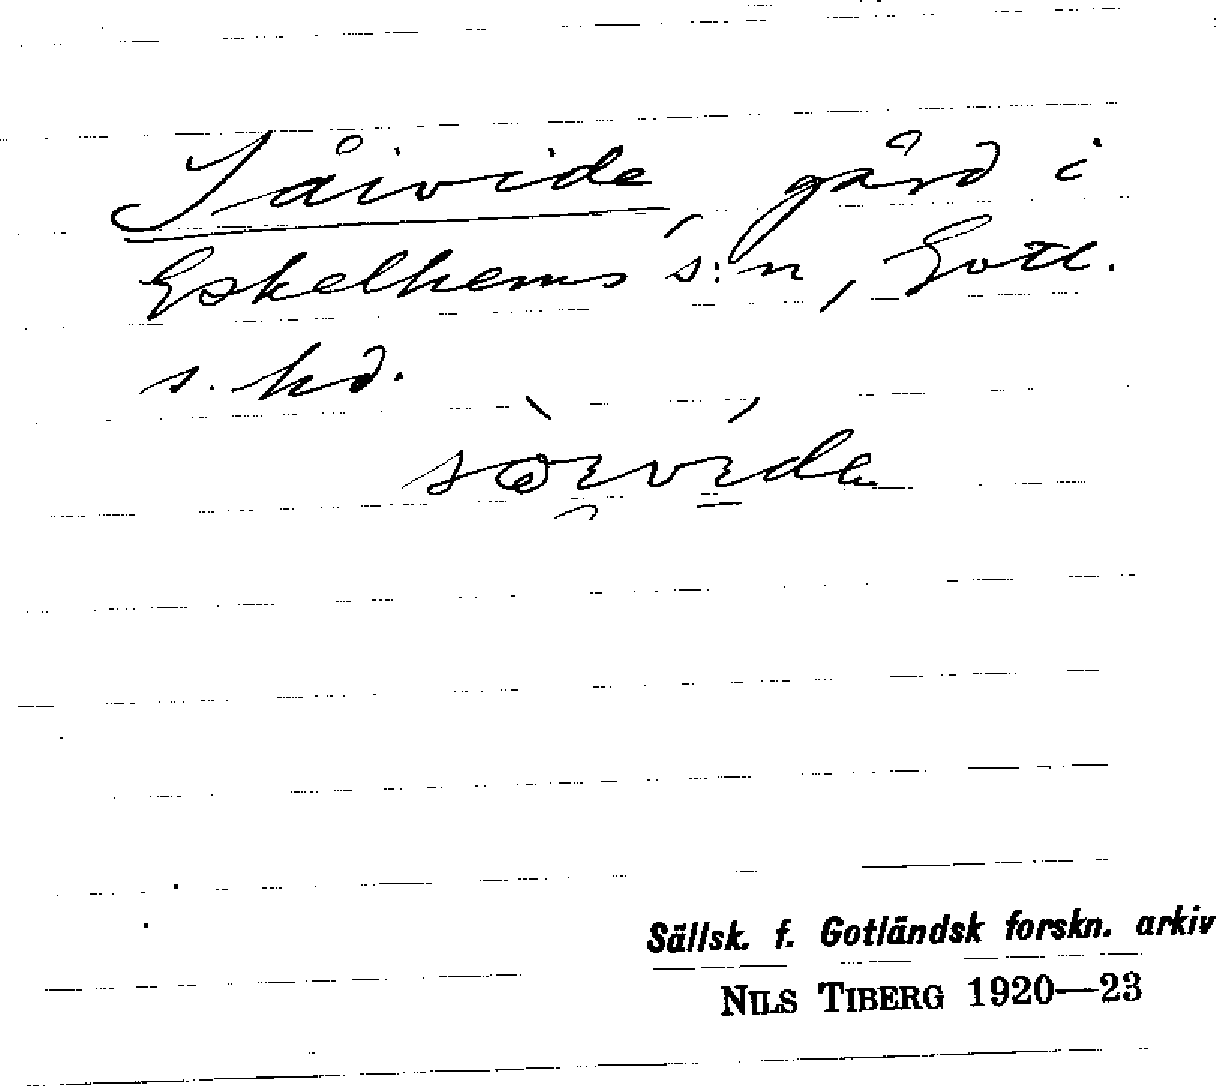 Såivide, gård i
Eskelhems s:n, Gotl.
s. hd.
Sällsk. f. Gotländsk forskn. arkiv
NILS TIBERG 1920—23